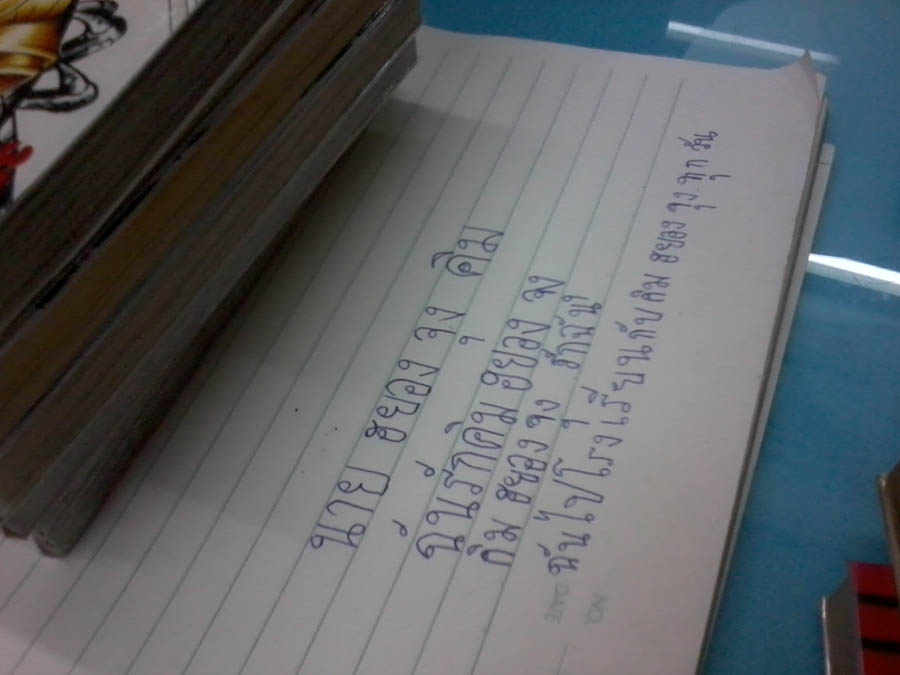 นาย ฮยอง จุง คิม
ฉันรักคิม ฮยอง จุง
คิม ฮยอง จุง รักฉัน
ฉันไปโรงเรียนกับคิม ฮยอง จุง ทุก วัน
NO.
DATE